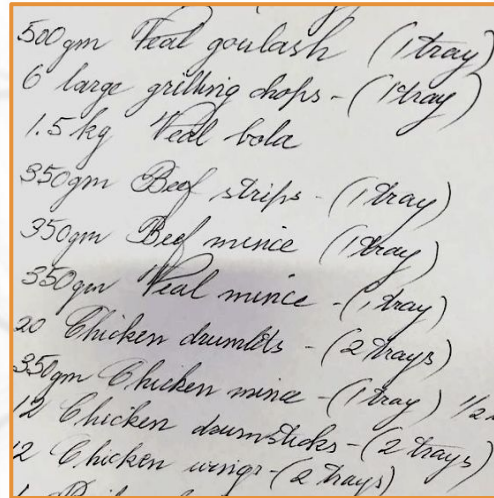 500gm Veal goulash (1 tray)
6 large grilling chops - (1 tray)
1.5 kg Veal bola
350gm Beef strips - (1 tray)
350gm Beef mince (1 tray)
350gm Veal mince - (1 tray)
20 Chicken drumlets - (2 trays)
350gm Chicken mince - (1 tray) 1/2
12 Chicken drumsticks - (2 trays)
12 Chicken wings - (2 trays)